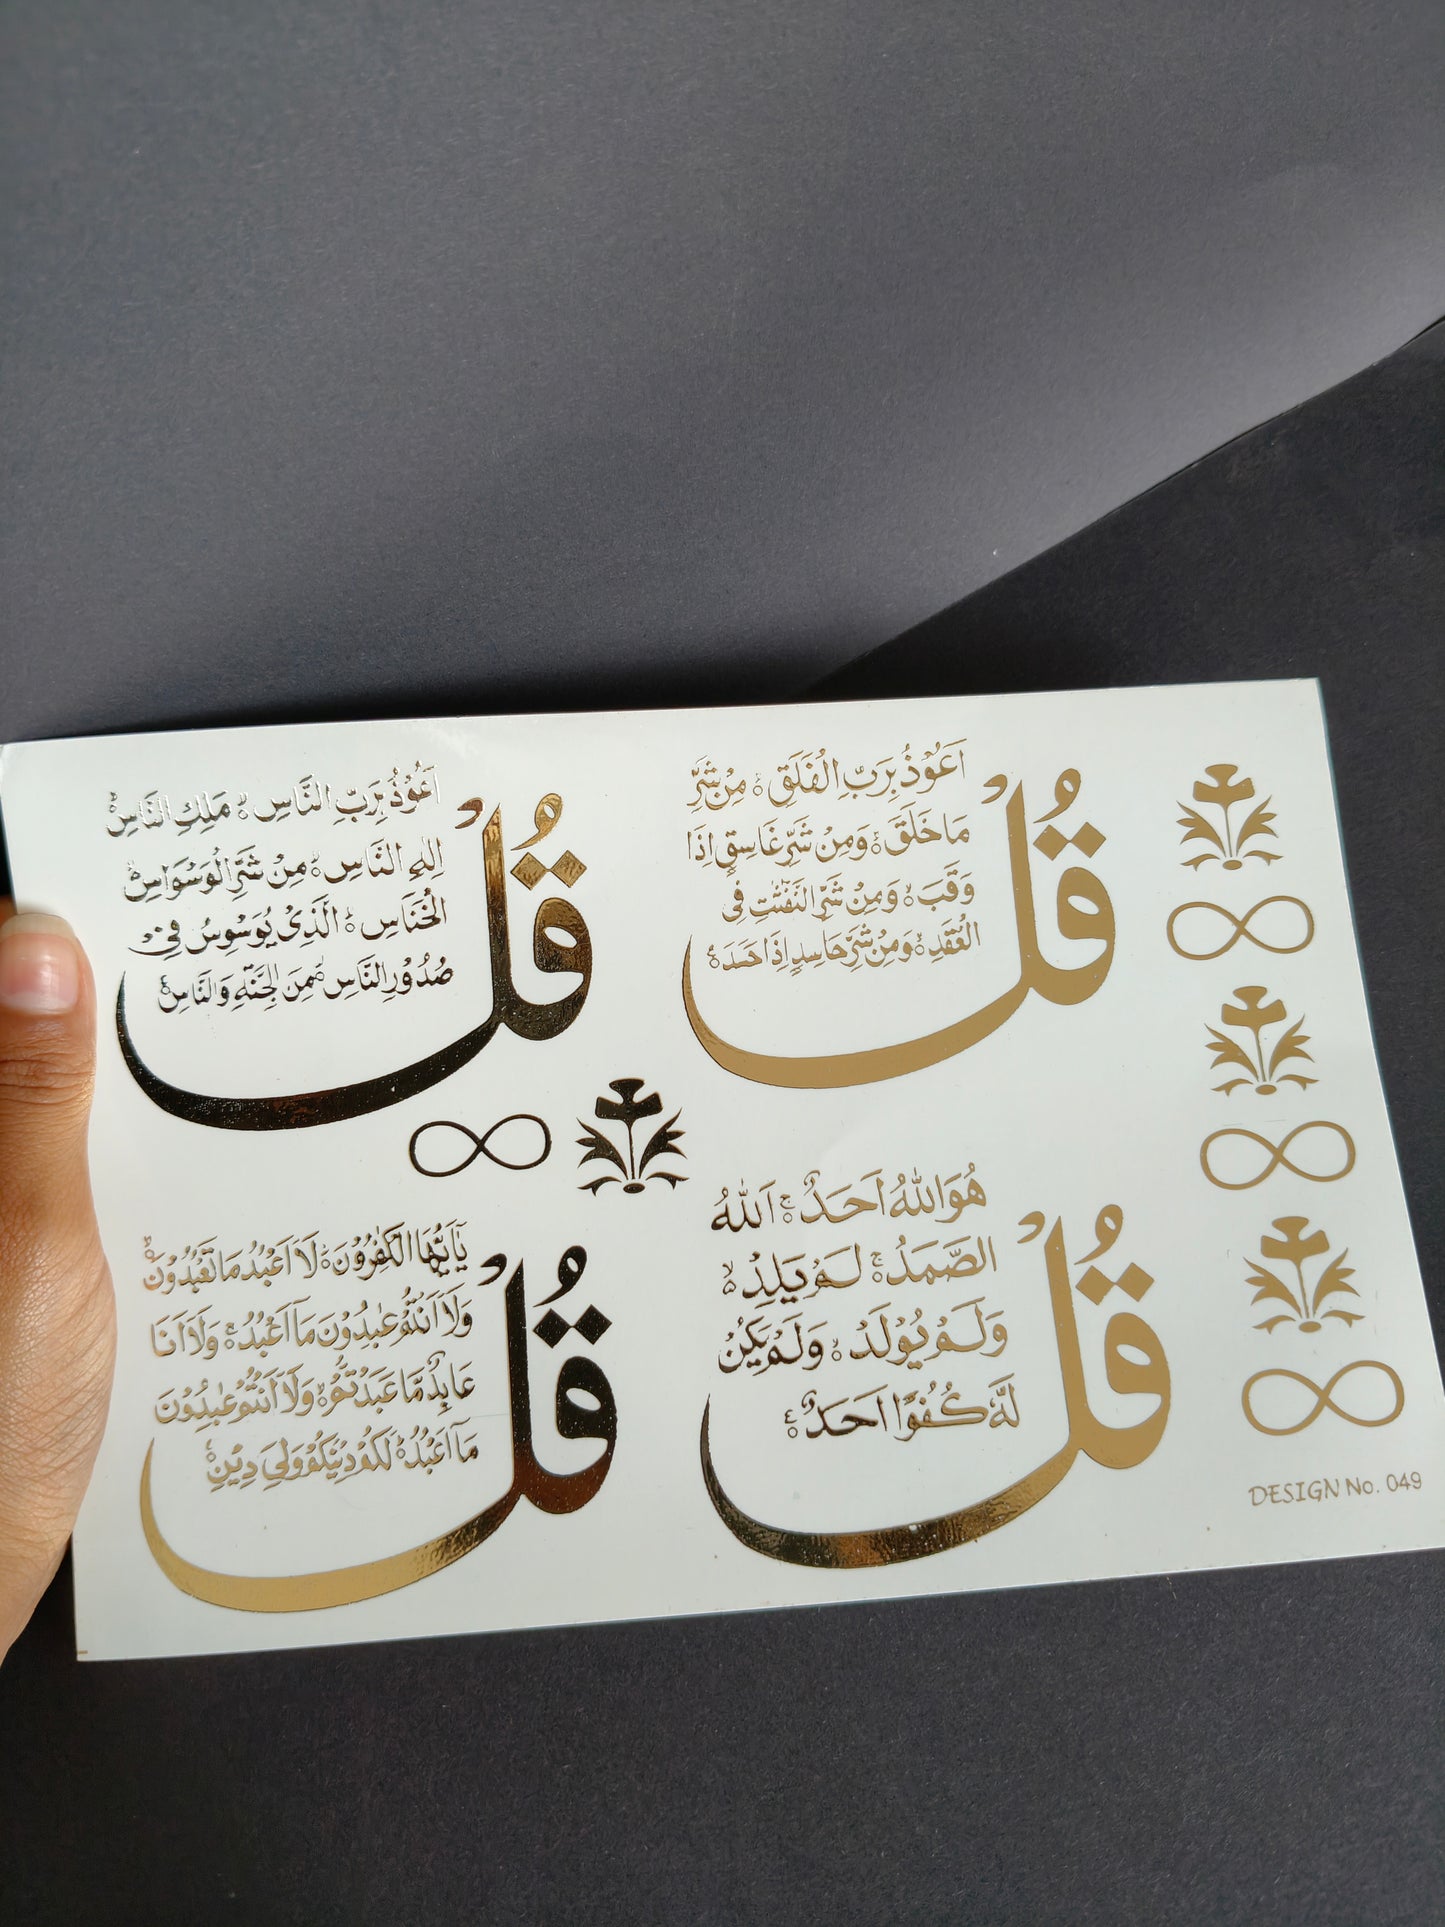 قُلْ
اَعُوْذُ بِرَبِّ الْفَلَقِ ۙ مِنْ شَرِّ
مَا خَلَقَ ۙ وَمِنْ شَرِّ غَاسِقٍ اِذَا
وَقَبَ ۙ وَمِنْ شَرِّ النَّفّٰثٰتِ فِی
الْعُقَدِ ۙ وَمِنْ شَرِّ حَاسِدٍ اِذَا حَسَدَ ۧ
قُلْ
اَعُوْذُ بِرَبِّ النَّاسِ ۙ مَلِكِ النَّاسِ ۙ
اِلٰهِ النَّاسِ ۙ مِنْ شَرِّ الْوَسْوَاسِ ۙ
الْخَنَّاسِ ۙ الَّذِیْ یُوَسْوِسُ فِیْ
صُدُوْرِ النَّاسِ ۙ مِنَ الْجِنَّةِ وَالنَّاسِ ۧ
قُلْ
هُوَ اللّٰهُ اَحَدٌ ۚ اَللّٰهُ
الصَّمَدُ ۚ لَمْ یَلِدْ ۙ
وَلَمْ یُوْلَدْ ۙ وَلَمْ یَكُنْ
لَّهٗ كُفُوًا اَحَدٌ ۧ
قُلْ
یٰۤاَیُّهَا الْكٰفِرُوْنَ ۙ لَاۤ اَعْبُدُ مَا تَعْبُدُوْنَ ۙ
وَلَاۤ اَنْتُمْ عٰبِدُوْنَ مَاۤ اَعْبُدُ ۚ وَلَاۤ اَنَا
عَابِدٌ مَّا عَبَدْتُّمْ ۙ وَلَاۤ اَنْتُمْ عٰبِدُوْنَ
مَاۤ اَعْبُدُ ۙ لَكُمْ دِیْنُكُمْ وَلِیَ دِیْنِ ۧ
DESIGN No. 049